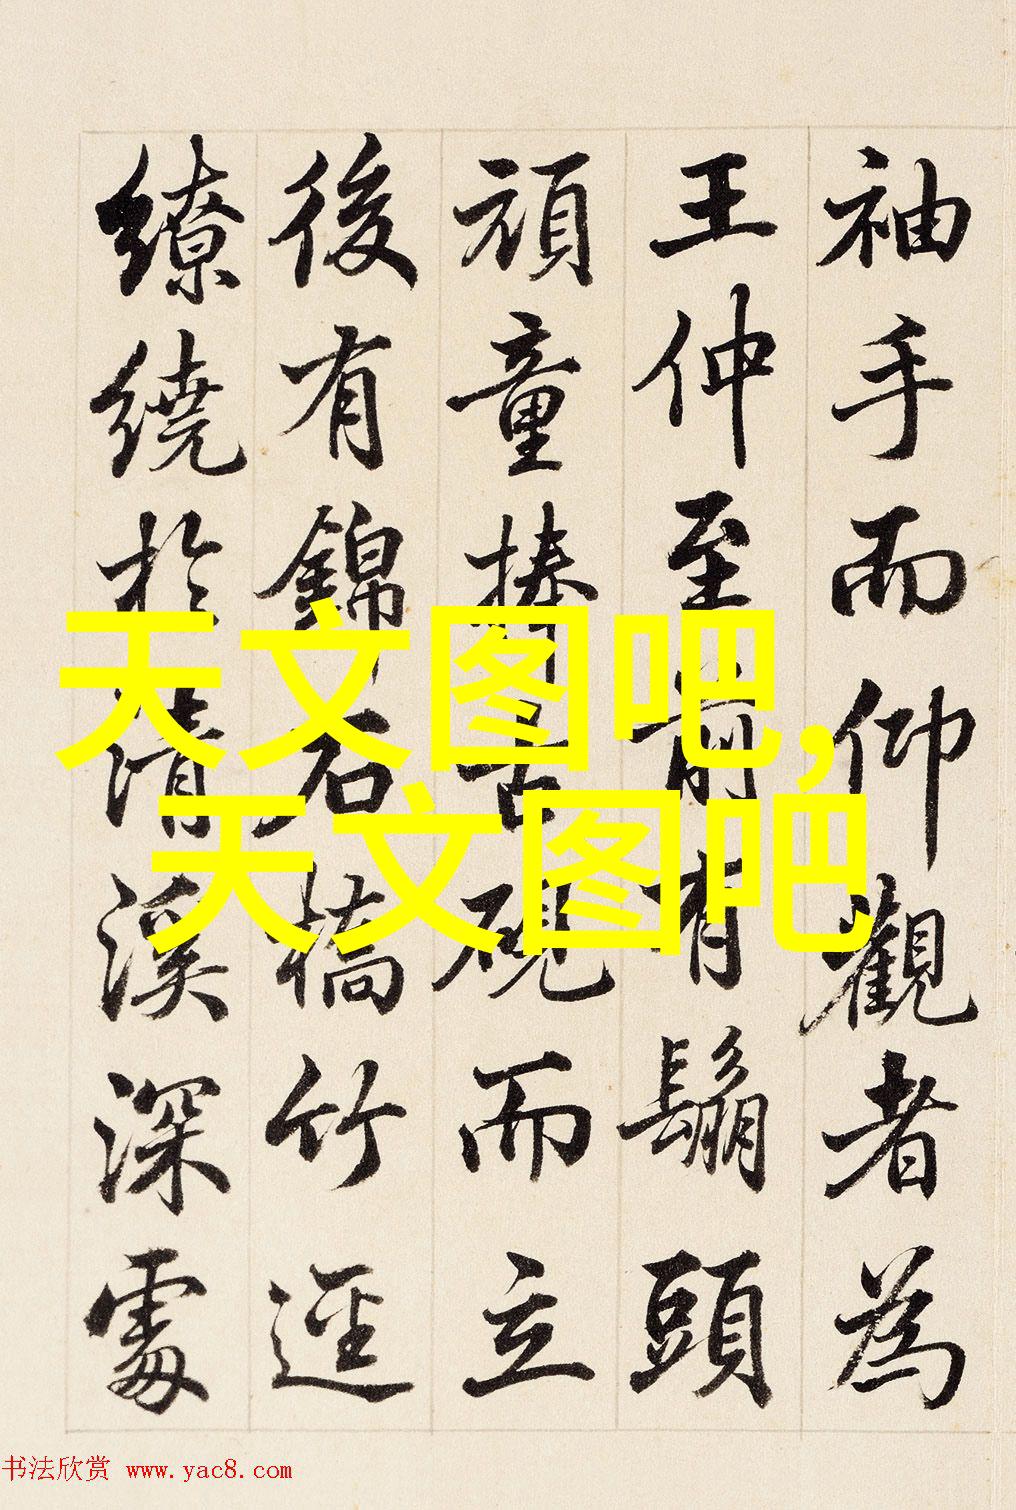 袖手而仰觀者為
王仲至前有鬅頭
頑童捧古硯而立
後有錦石橋竹逕
繚繞於清溪深處
天文图吧,
天文图吧
书法欣赏 www.yac8.com